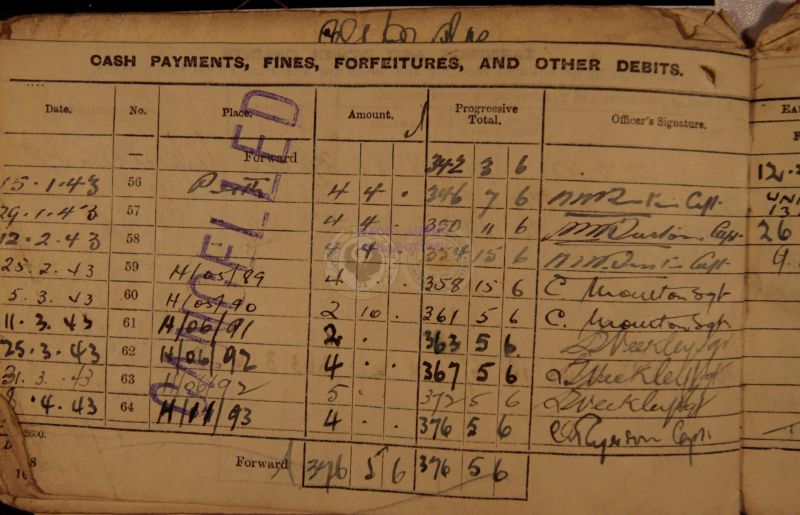 CASH PAYMENTS, FINES, FORFEITURES, AND OTHER DEBITS.
Date. No. Place. Amount. Progressive Total. Officer's Signature.
CANCELLED
— Forward 342 3 6
15.1.43 56 Perth 4 4 . 346 7 6 Capt.
29.1.43 57 4 4 . 350 11 6 Capt.
12.2.43 58 4 4 . 354 15 6 Capt.
25.2.43 59 H/05/89 4 . . 358 15 6 C. Moulton Sgt
5.3.43 60 H/05/90 2 10 . 361 5 6 C. Moulton Sgt
11.3.43 61 H/06/91 2 . . 363 5 6
25.3.43 62 H/06/92 4 . . 367 5 6
31.3.43 63 H/06/92 5 . . 372 5 6
8.4.43 64 H/11/93 4 . . 376 5 6 Capt.
2600.
Forward 376 5 6 376 5 6